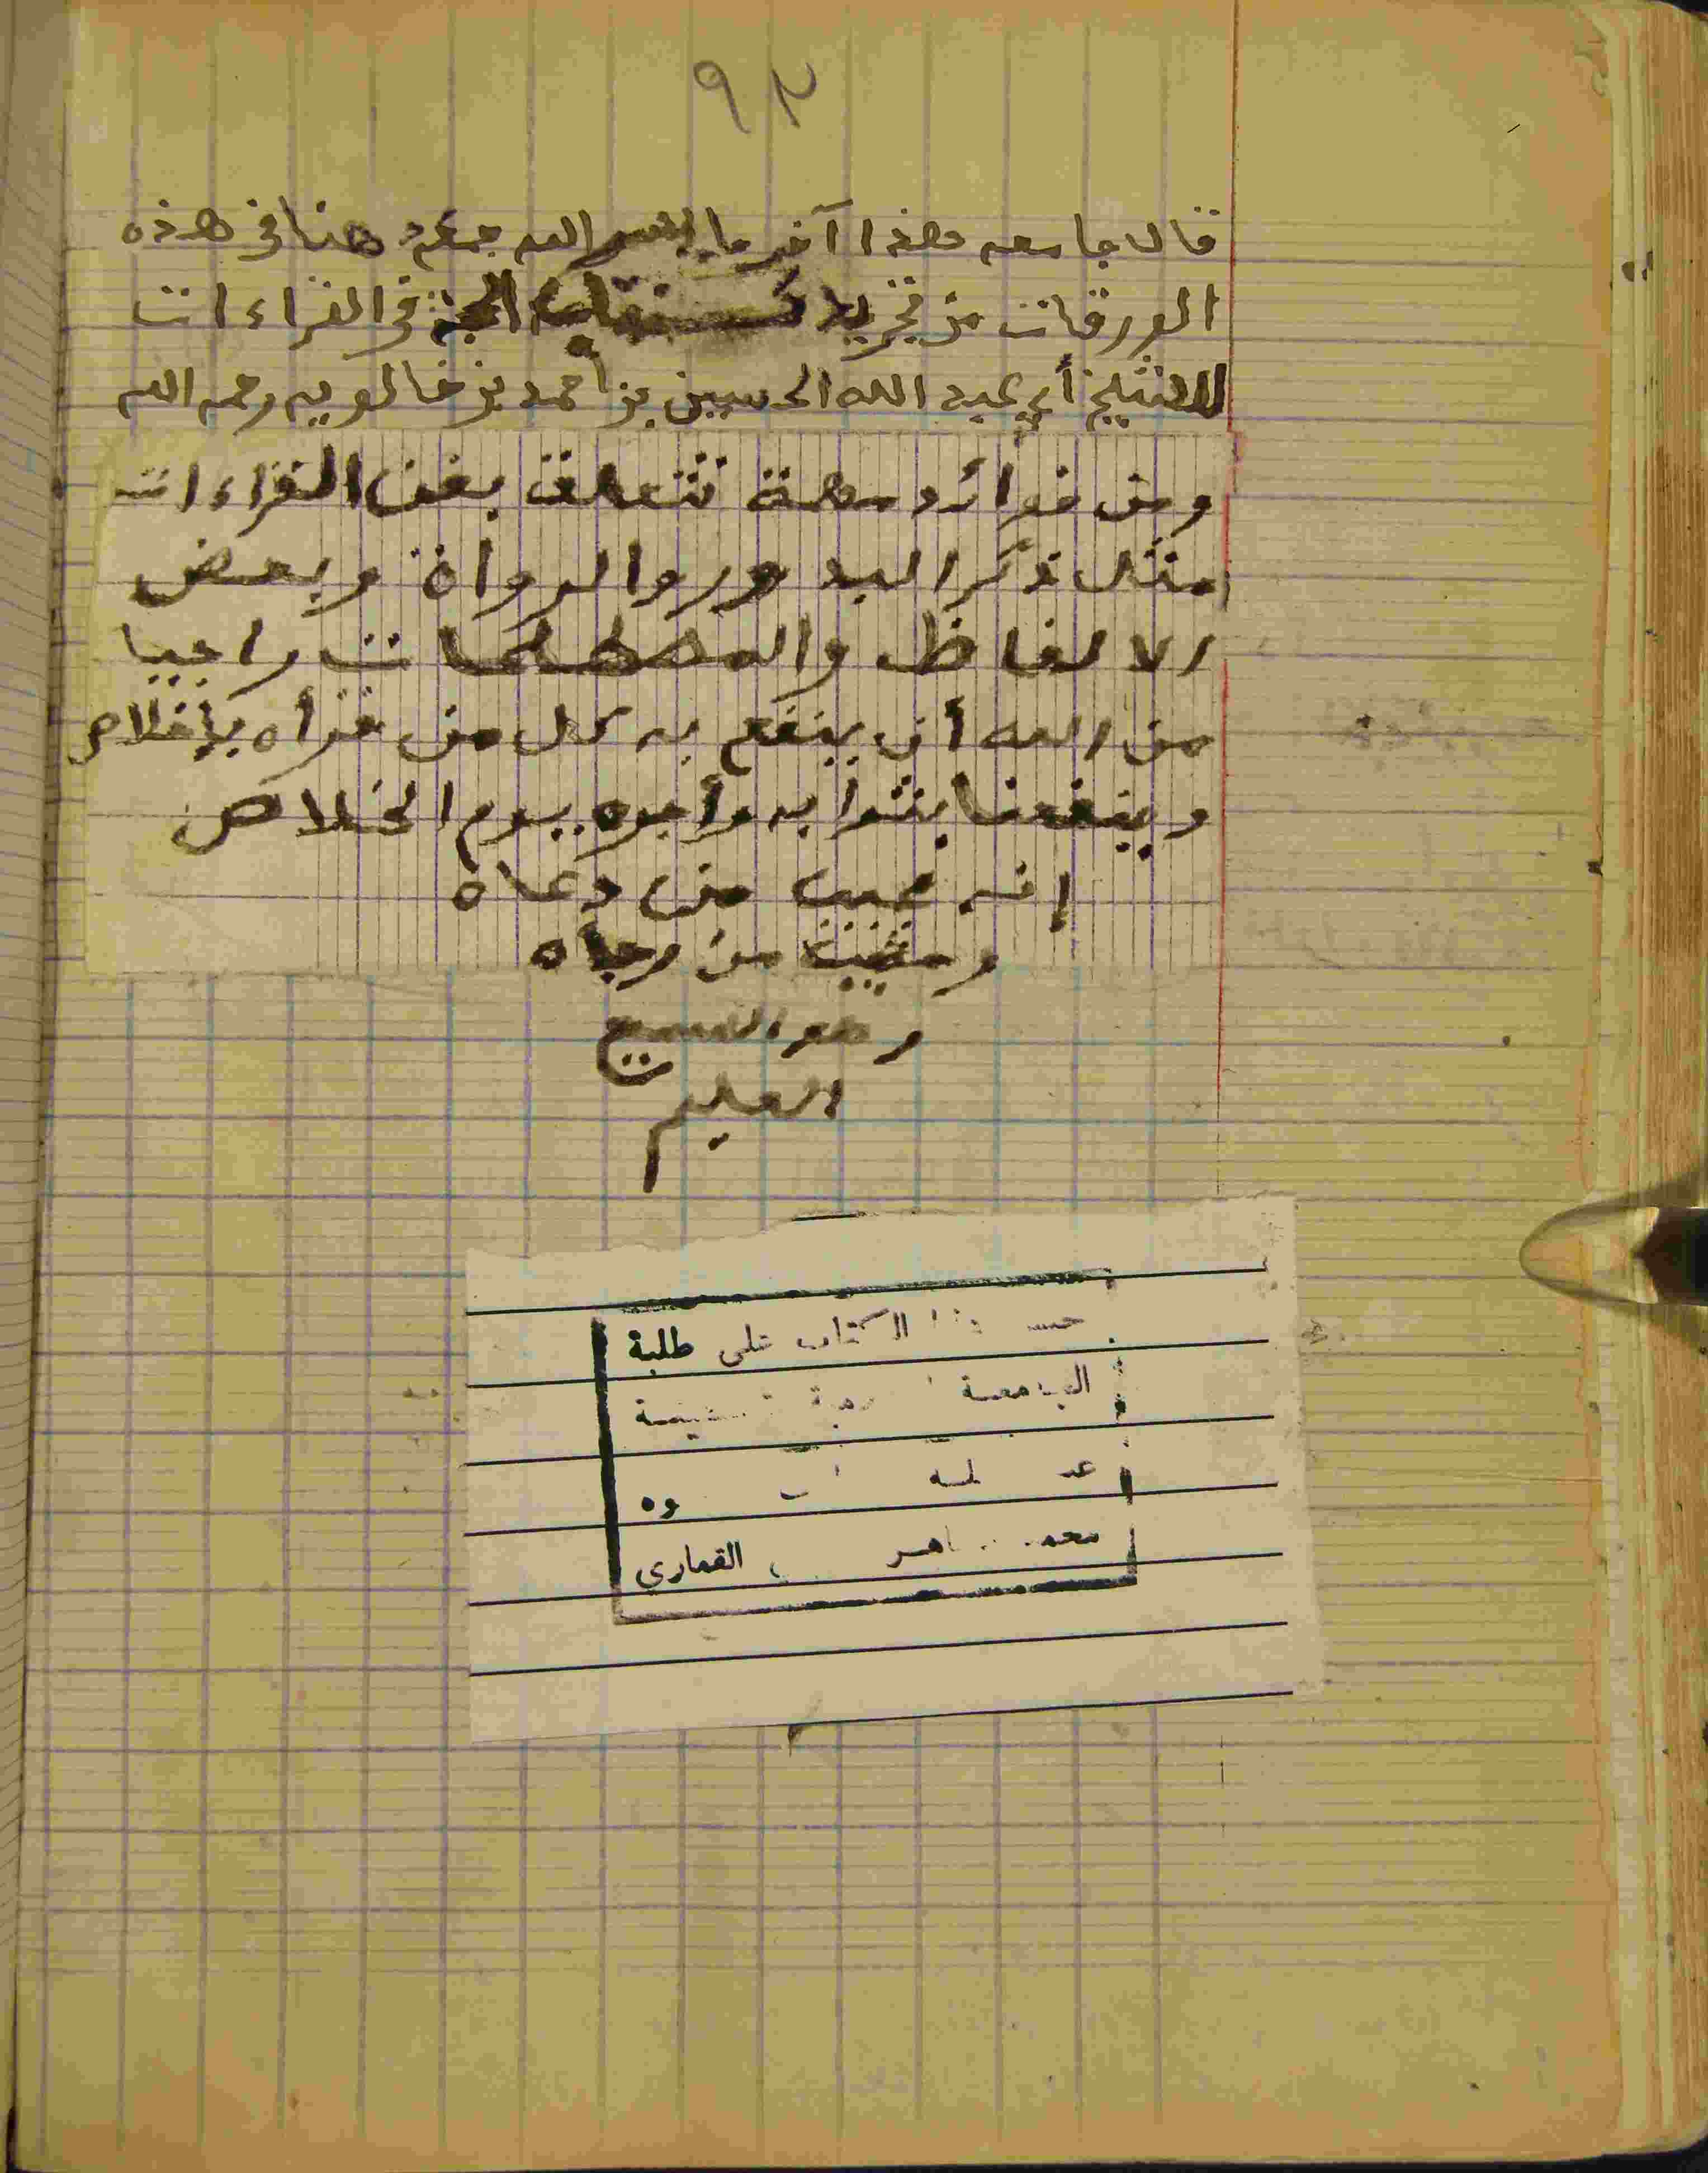 ٩٢
قال جامعه وهذا آخر ما يسر الله جمعه هنا في هذه
الورقات من تجريد كتاب الحجة في القراءات
للشيخ أبي عبد الله الحسين بن أحمد بن خالويه رحمه الله
ومن فوائد مهمة تتعلق بفن القراءات
مثل ذكر البدور والرواة وبعض
الالفاظ والمصطلحات راجيا
من الله أن ينفع به كل من قرأه بإخلاص
وينفعنا بثوابه وأجره يوم الخلاص
إنه مجيب من دعاه
ومثيب من رجاه
وهو السميع
العليم
الكتاب على طلبة
الجامعة
وه
القماري